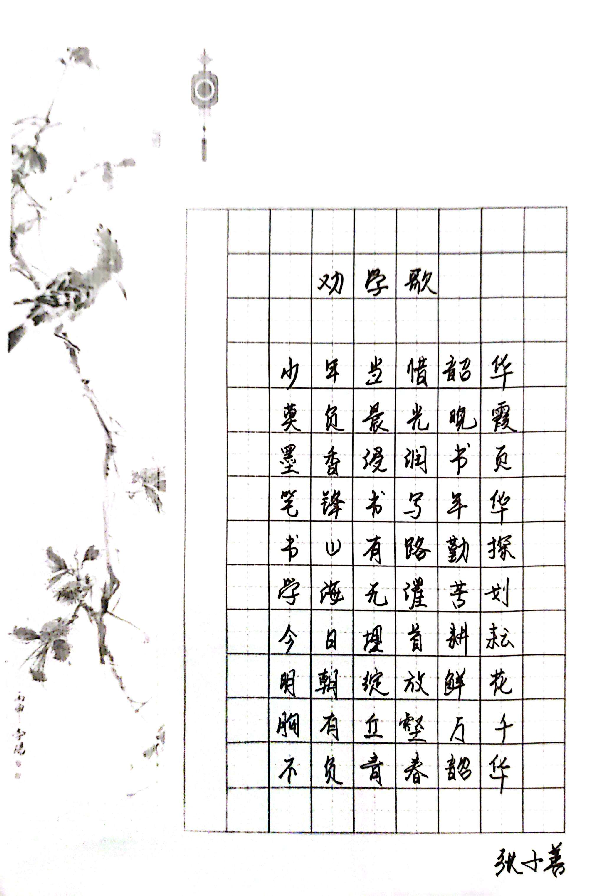 劝学歌
少年当惜韶华
莫负晨光晚霞
墨香浸润书页
笔锋书写年华
书山有路勤探
学海无涯苦划
今日埋首耕耘
明朝绽放鲜花
胸有丘壑万千
不负青春韶华
张小善